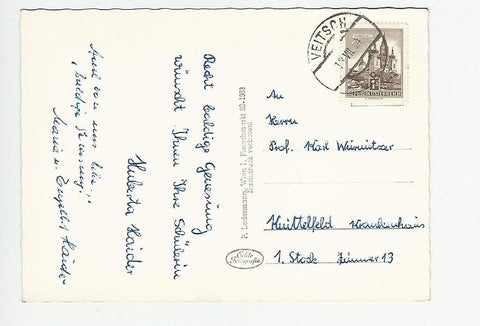 Recht baldige Genesung
wünscht Ihnen Ihre Schülerin
Huberta Haider
Auch von uns
baldige Genesung!
Maria u. Engelbert Haider
P. Ledermann, Wien I, Fleischmarkt 20-1963
Nachdruck verboten!
Echte
Fotografie
VEITSCH
REPUBLIK ÖSTERREICH
An
Herrn
Prof. Karl
Knittelfeld Krankenhaus
1. Stock Zimmer 13